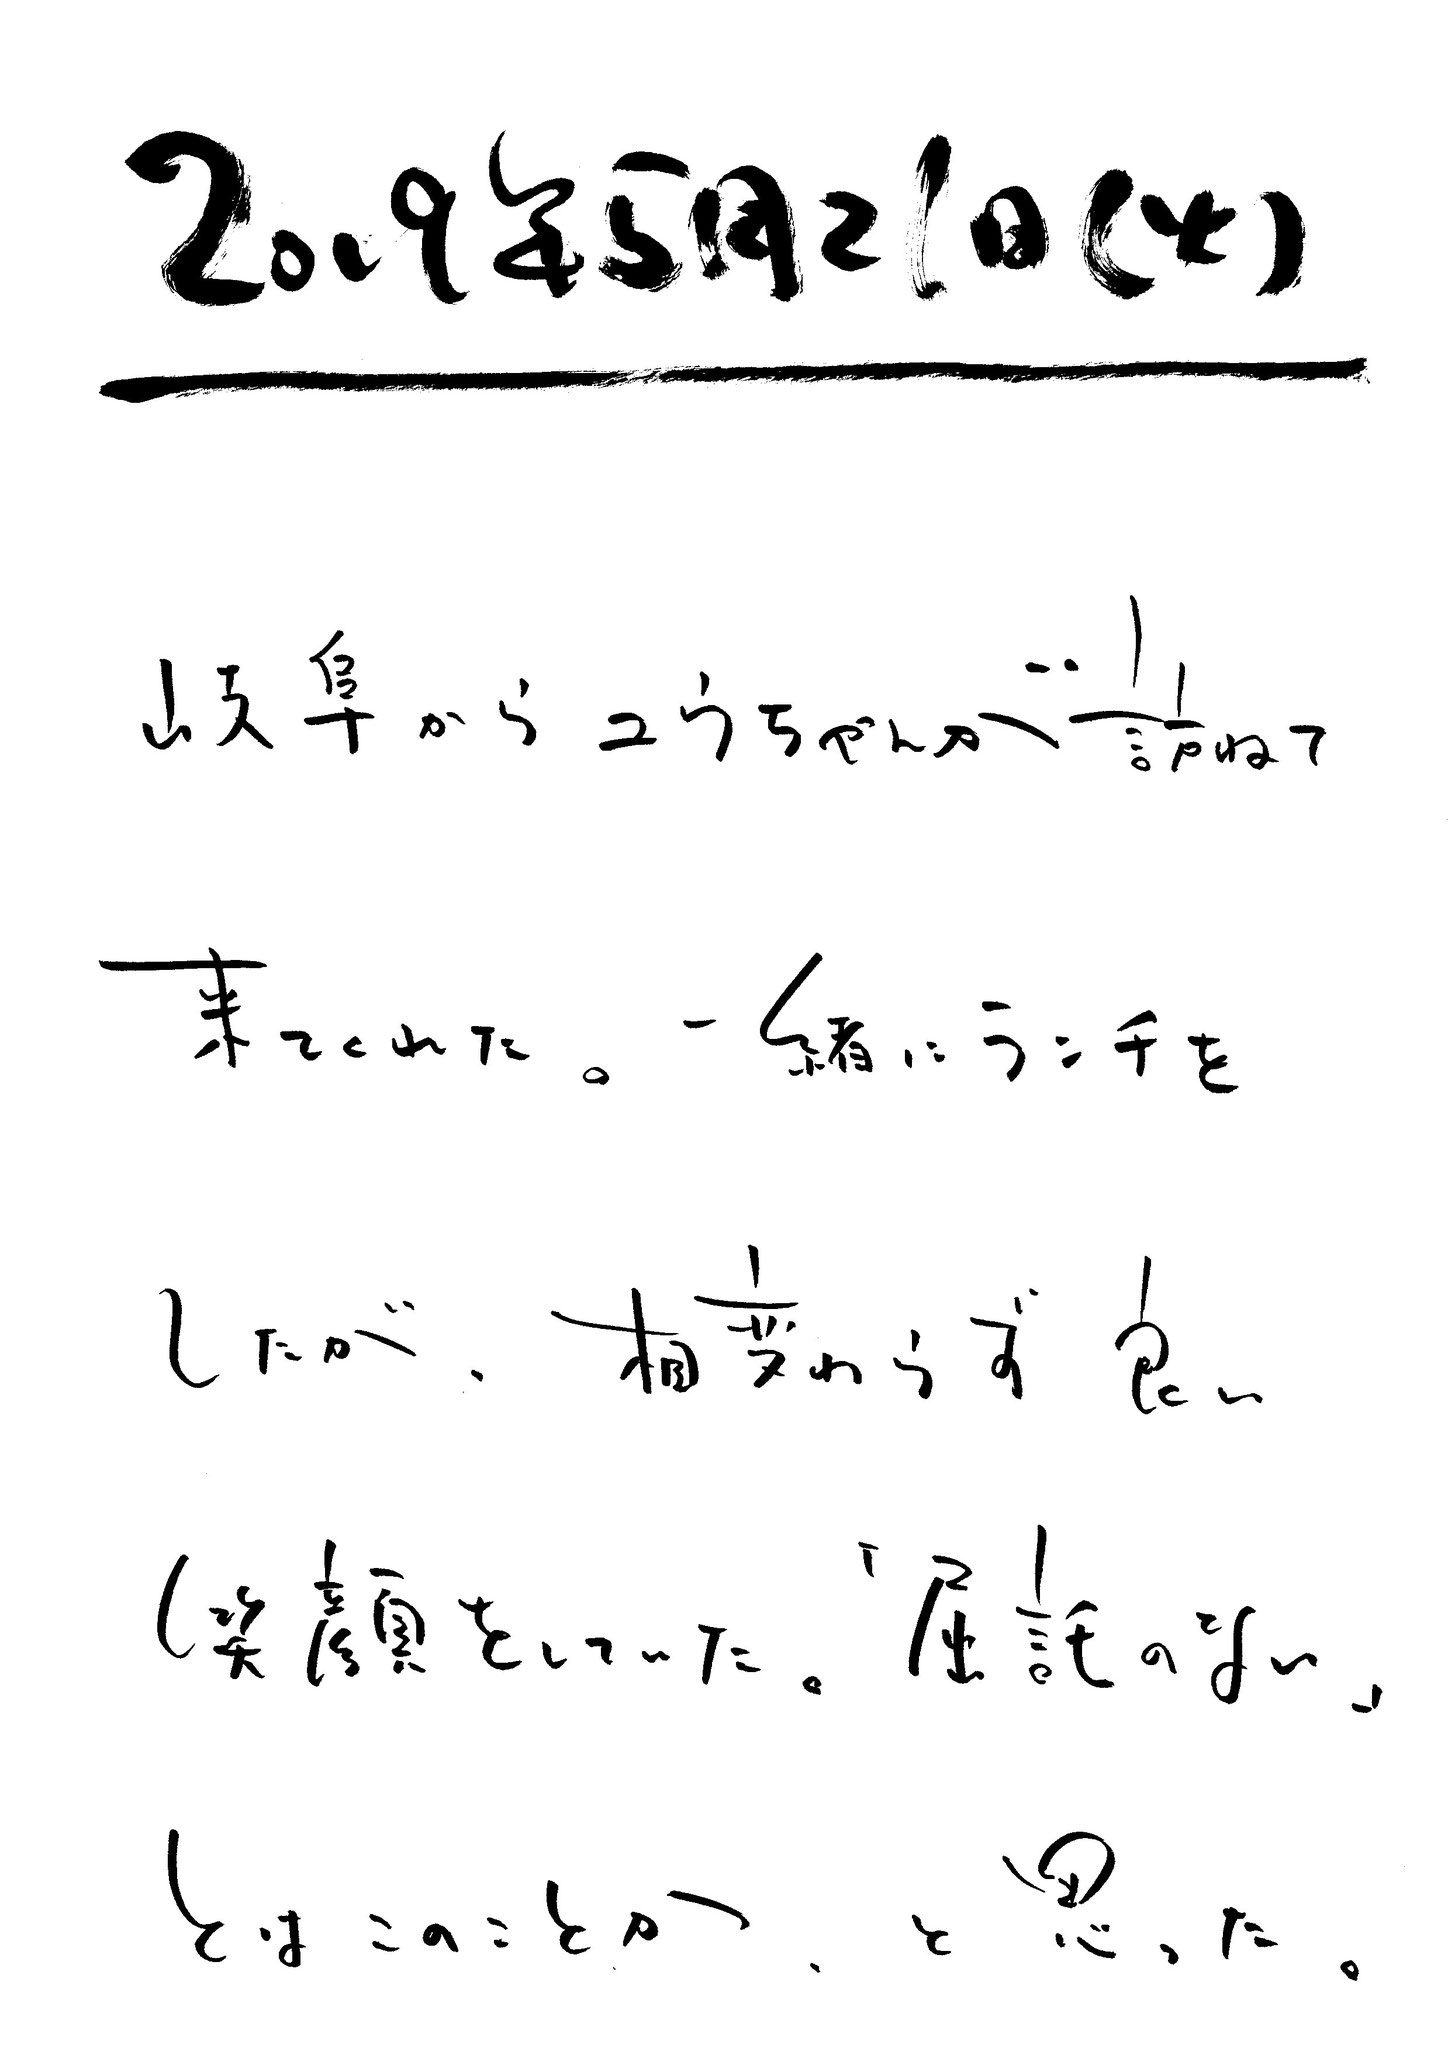 2019年5月21日(火)
岐阜からユウちゃんが訪ねて
来てくれた。一緒にランチを
したが、相変わらず良い
笑顔をしていた。「屈託のない」
とはこのことか、と思った。